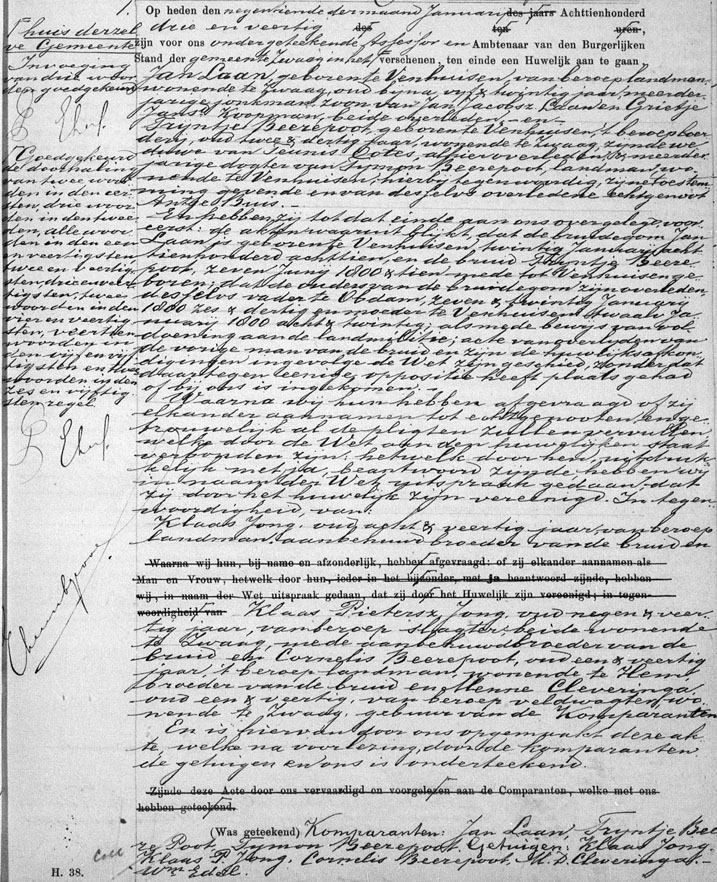 1.
Op heden den negentiende der maand Januarij des jaars Achttienhonderd
drie en veertig des ten uren,
zijn voor ons ondergeteekende Assessor in Ambtenaar van den Burgerlijken
Stand der gemeente Zwaag in het verschenen, ten einde een Huwelijk aan te gaan
Jan Laan, geboren te Venhuisen, van beroep landman,
wonende te Zwaag, oud bijna vijf & twintig jaar, meerder-
jarige jonkman, zoon van Jan Jacobsz Laan en Grietje
Jans Koopman, beide overleden, - en -
Trijntje Beerepoot, geboren te Venhuisen, 't beroep boer
derij, oud twee & dertig jaar, wonende te Zwaag, zijnde we
duwe van Teunis Botes, alhier overleden, & meerder
jarige dogter van Tymon Beerepoot, landman, wo-
nende te Venhuisen, hierbij tegenwoordig, zijne toestem-
ming gevende en van deszelfs overledene echtgenoot
Antje Buis. -
En hebben zij tot dat einde aan ons overgelegd voor
eerst: de akten waaruit blijkt dat de bruidegom Jan
Laan is geboren te Venhuisen, twintig Januarij acht
tienhonderd achttien, en de bruid Tryntje Beere
poot, zeven Junij 1800 & tien mede tot Venhuisen ge-
boren; dat de ouders van de bruidegom zijn overleden
deszelvs vader te Obdam, zeven & twintig Januarij
1800 zes & dertig en moeder te Venhuisen twaalf Ja
nuarij 1800 acht & twintig; alsmede bewijs van vol
doening aan de landmilitie; acte van overlijden van
de vorige man van de bruid en zijn de huwelijksafkon
digingen ingevolge de Wet zijn geschied, zonder dat
daartegen eenige oppositie heeft plaats gehad
of bij ons is ingekomen.
Waarna wij hun hebben afgevraagd of zij
elkander aannamen tot echtgenooten en ge-
trouwelijk al de pligten zullen vervullen
welke door de Wet aan den huwelijken staat
verbonden zijn; hetwelk door hen uitdruk
kelijk met ja, beantwoord zijnde hebben wij
in naam der Wet uitspraak gedaan, dat
zij door het huwelijk zijn vereenigd. In tegen
woordigheid van:
Klaas Jong, oud acht & veertig jaar, van beroep
landman, aanbehuwd broeder van de bruid en
Waarna wij hun, bij name en afzonderlijk, hebben afgevraagd: of zij elkander aannamen als
Man en Vrouw, hetwelk door hun, ieder in het bijzonder, met ja beantwoord zijnde, hebben
wij, in naam der Wet uitspraak gedaan, dat zij door het Huwelijk zijn vereenigd; in tegen-
woordigheid van Klaas Pietersz Jong, oud negen & veer-
tig jaar, van beroep slagter, beide wonende
te Zwaag, mede aanbehuwdbroeder van de
bruid en Cornelis Beerepoot, oud een & veertig
jaar, 't beroep landman, wonende te Hem
broeder van de bruid en Menne Cleveringa
oud een & veertig, van beroep veldwagter, wo
nende te Zwaag, gebuur van de Komparanten
En is hiervan door ons opgemaakt deze ak
te, welke na voorlezing, door de komparanten
de getuigen en ons is onderteekend.
Zijnde deze Acte door ons vervaardigd en voorgelezen aan de Comparanten, welke met ons
hebben geteekend.
(Was geteekend) Komparanten: Jan Laan, Tryntje Bee
re Poot, Tymon Beerepoot. Getuigen: Klaas Jong.
Klaas P. Jong. Cornelis Beerepoot, M. D. Cleveringa. -
Wm Edel.
't huis derzel
ve Gemeente
Invoeging
van drie woor
den goedgekeurd
Goedgekeurd
de doorhaling
van twee woor
den in den eer
sten, drie woor
den in den twee
den, alle woor
den in den een
en veertigsten
twee en veertig-
sten, drie en veer
tigsten, twee
woorden in den
vier en veertig
sten, veertien
woorden in den
vijf en vijf
tigsten en twee
woorden in den
zes en vijftig
sten regel
coll
H. 38.